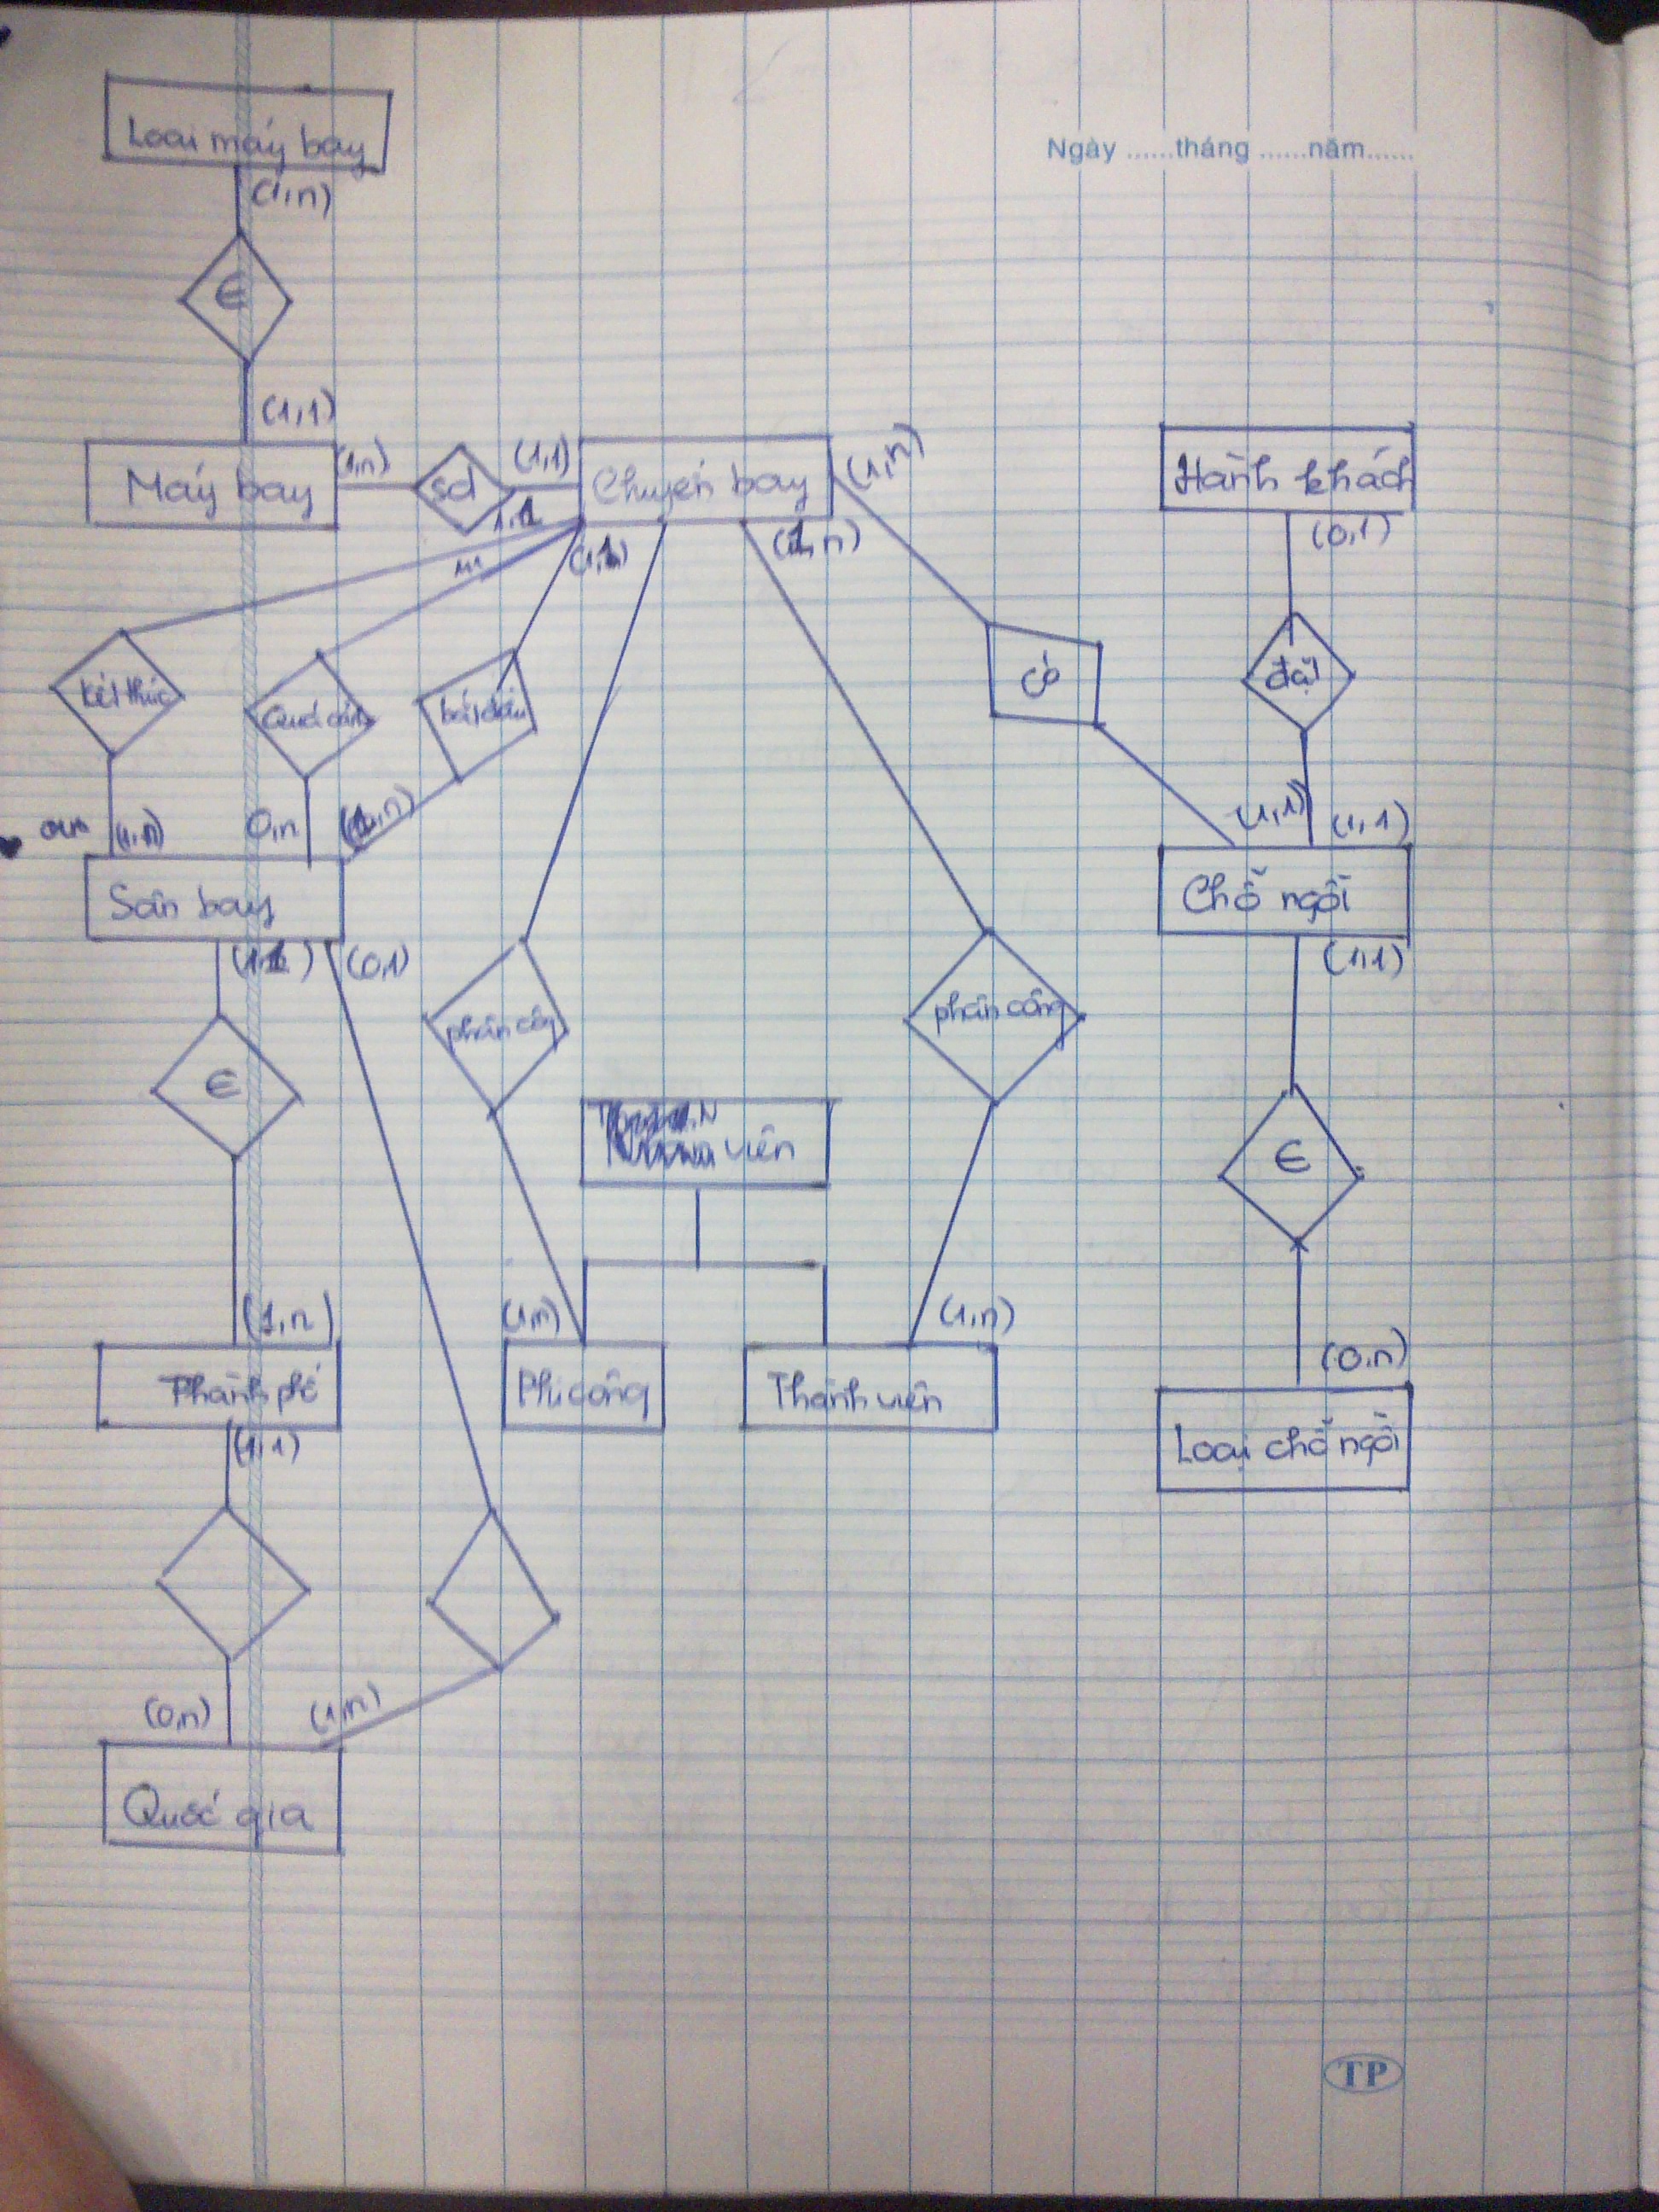 Loại máy bay
Ngày ......tháng ......năm......
(1,n)
∈
(1,1)
Máy bay
(1,n)
sd
(1,1)
Chuyến bay
(1,n)
Hành khách
1,1
(1,1)
(1,n)
(0,1)
kết thúc
Quá cảnh
bắt đầu
có
đặt
(1,n)
0,n
(1,n)
(1,1)
(1,1)
Sân bay
Chỗ ngồi
(1,1)
(0,1)
(1,1)
∈
phân công
phân công
viên
∈
(1,n)
(1,n)
(1,n)
(0,n)
Thành phố
Phi công
Thành viên
Loại chỗ ngồi
(1,1)
(0,n)
(1,n)
Quốc gia
TP